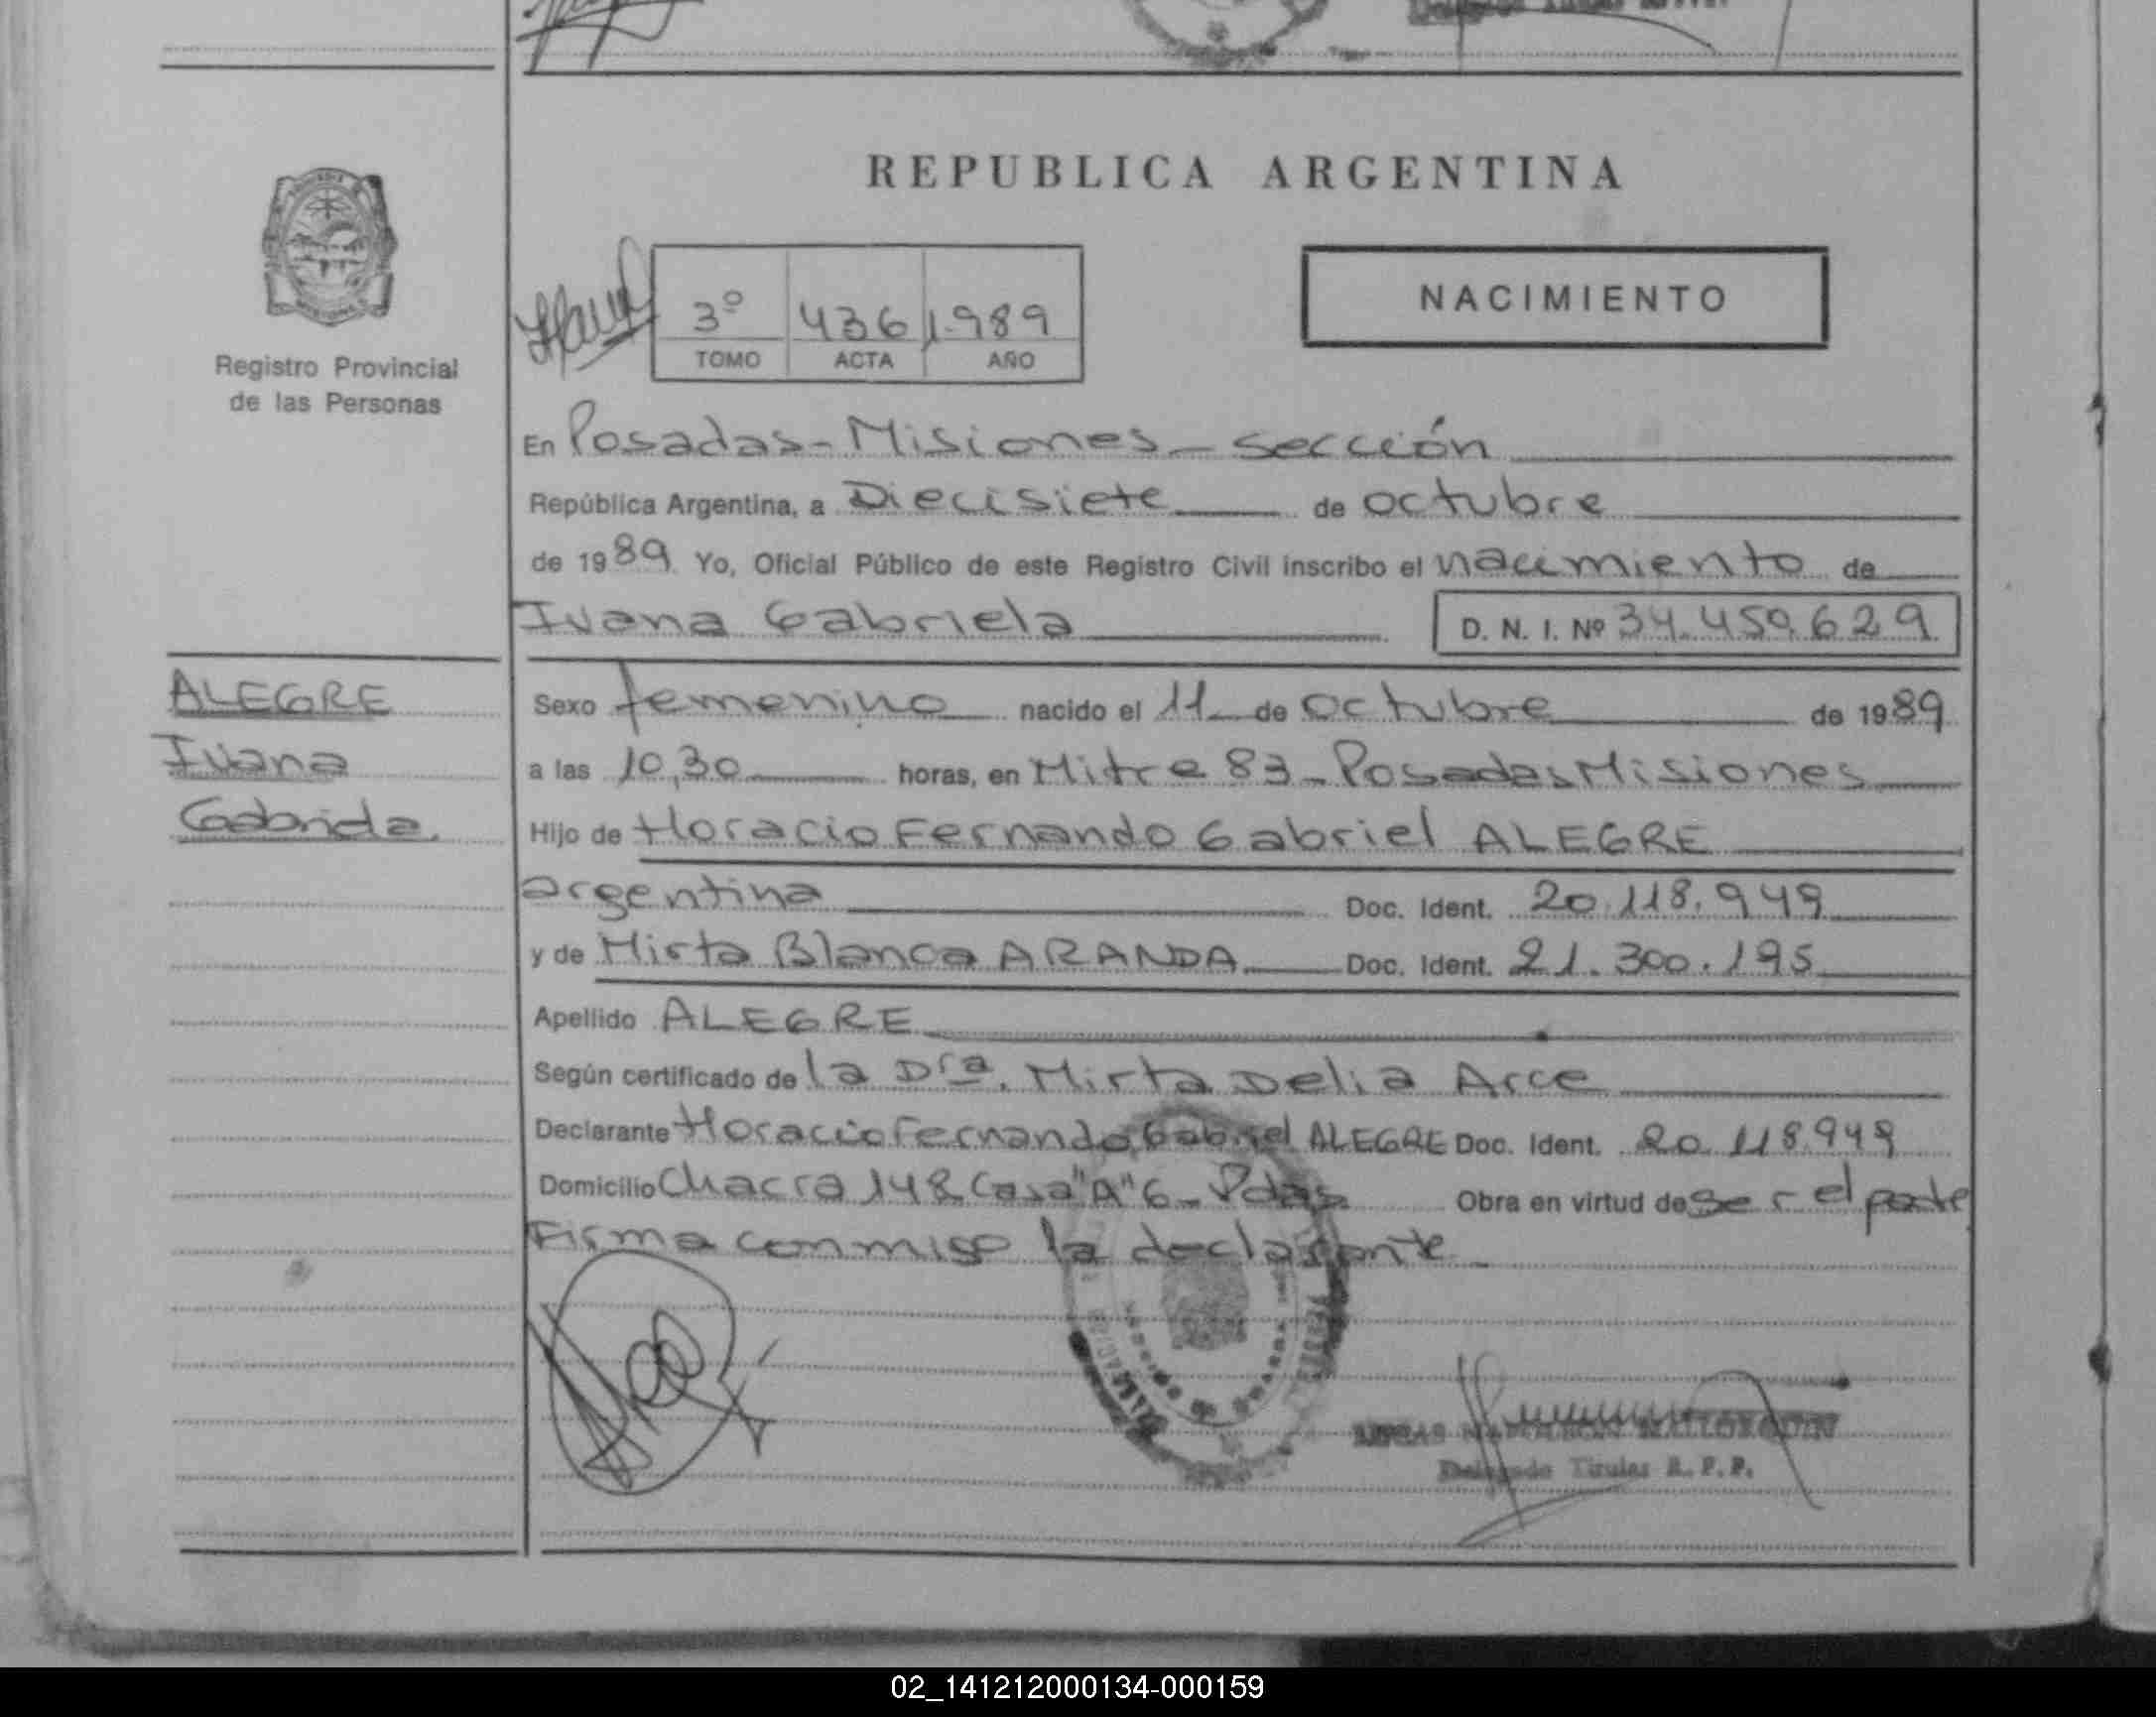 REPUBLICA ARGENTINA
Registro Provincial
de las Personas
3º 436 1989
TOMO ACTA AÑO
NACIMIENTO
En Posadas-Misiones-sección
República Argentina, a Diecisiete de octubre
de 1989 Yo, Oficial Público de este Registro Civil inscribo el nacimiento de
Ivana Gabriela D. N. I. Nº 34.450.629
ALEGRE
Ivana
Gabriela.
Sexo femenino nacido el 11 de octubre de 1989
a las 10,30 horas, en Mitre 83-Posadas Misiones
Hijo de Horacio Fernando Gabriel ALEGRE
argentina Doc. Ident. 20.118.949
y de Mirta Blanca ARANDA Doc. Ident. 21.300.195
Apellido ALEGRE
Según certificado de la Drª. Mirta Delia Arce
Declarante Horacio Fernando Gabriel ALEGRE Doc. Ident. 20.118.949
Domicilio Chacra 148 Casa "A" 6-Pdas Obra en virtud de ser el
Firma conmigo la declarante
Delegado Titular R. P. P.
02_141212000134-000159